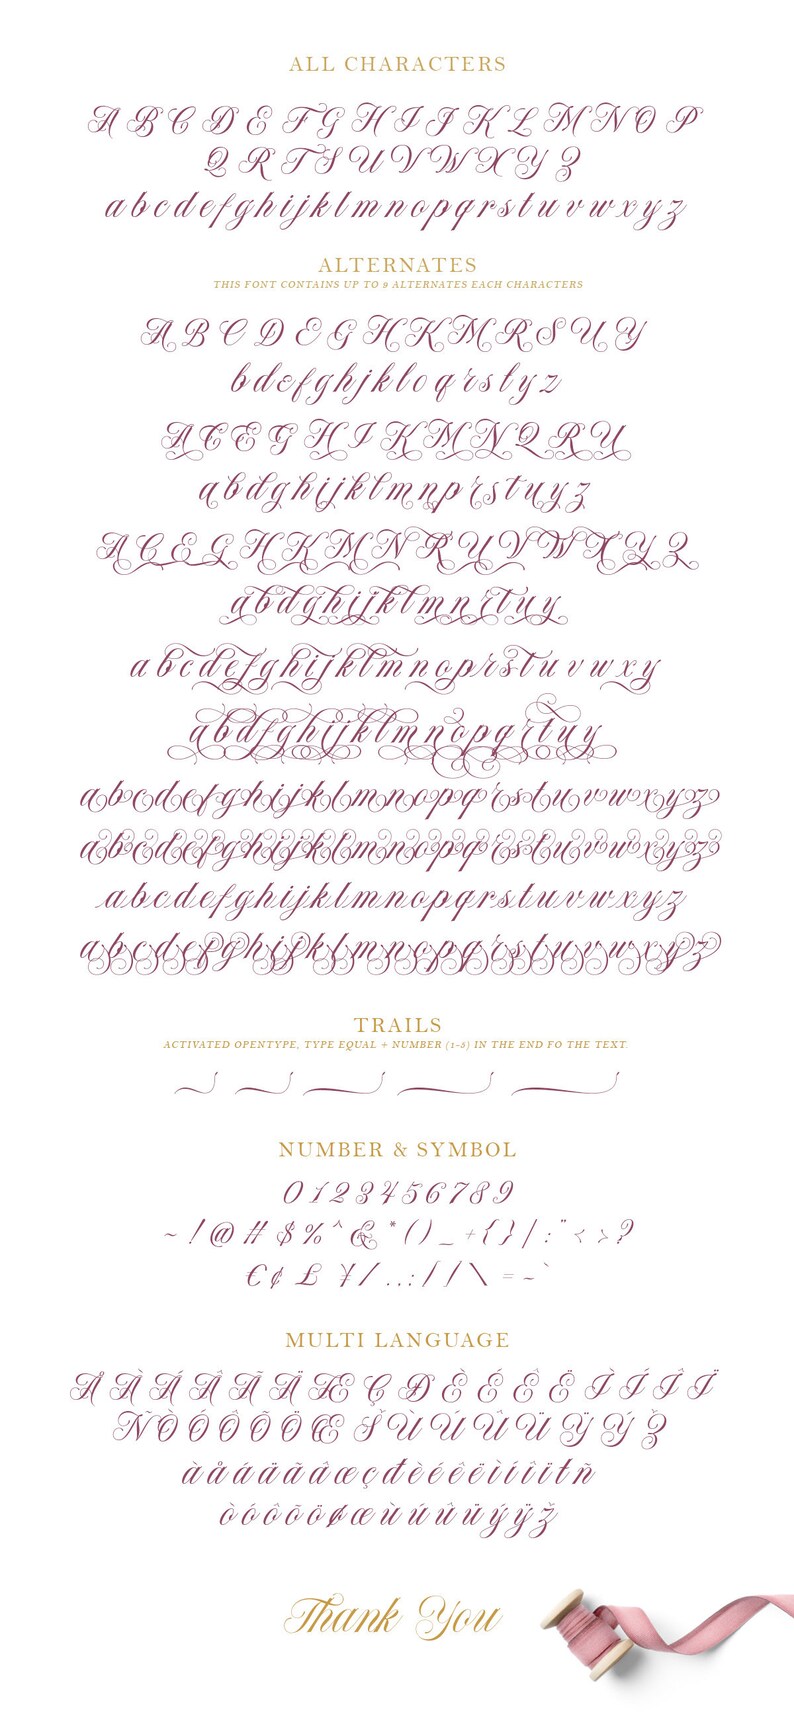 ALL CHARACTERS
A B C D E F G H I J K L M N O P
Q R T S U V W X Y Z
a b c d e f g h i j k l m n o p q r s t u v w x y z
ALTERNATES
THIS FONT CONTAINS UP TO 9 ALTERNATES EACH CHARACTERS
A B C D E G H K M R S U Y
b d e f g h j k l o q r s t y z
A C E G H I K M N Q R U
a b d g h i j k l m n p r s t u y z
A C E G H K M N R U V W X Y Z
a b d g h i j k l m n r t u y
a b c d e f g h i j k l m n o p r s t u v w x y
a b d f g h i j k l m n o p q r t u y
a b c d e f g h i j k l m n o p q r s t u v w x y z
a b c d e f g h i j k l m n o p q r s t u v w x y z
a b c d e f g h i j k l m n o p q r s t u v w x y z
a b c d e f g h i j k l m n o p q r s t u v w x y z
TRAILS
ACTIVATED OPENTYPE, TYPE EQUAL + NUMBER (1-5) IN THE END FO THE TEXT.
NUMBER & SYMBOL
0 1 2 3 4 5 6 7 8 9
~ ! @ # $ % ^ & * ( ) _ + { } | : " < > ?
€ ¢ £ ¥ / . , : [ ] \ = ~ `
MULTI LANGUAGE
Å À Á Â Ã Ä Æ Ç Đ È É Ê Ë Ì Í Î Ï
Ñ Ò Ó Ô Õ Ö Œ Š Ù Ú Û Ü Ÿ Ý Ž
à å á ä ã â æ ç đ è é ê ë ì í î ï ŧ ñ
ò ó ô õ ö ø œ ù ú û ü ý ÿ ž
Thank You